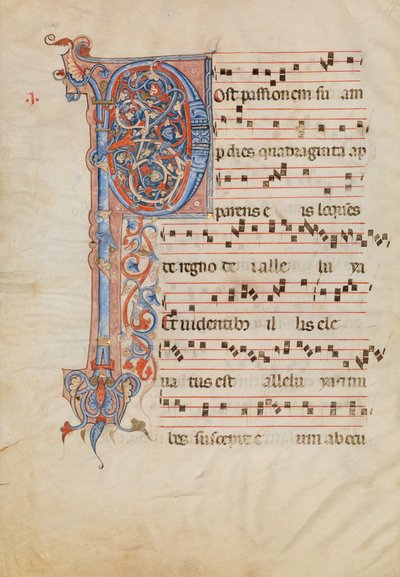 .I.
Post passionem su am
p dies quadraginta ap
parens e is loquēs
de regno de i alle lu ya
Et videntibꝰ il lis ele
ua tus est allelu ya et nu
bes suscepit e um ab ocu